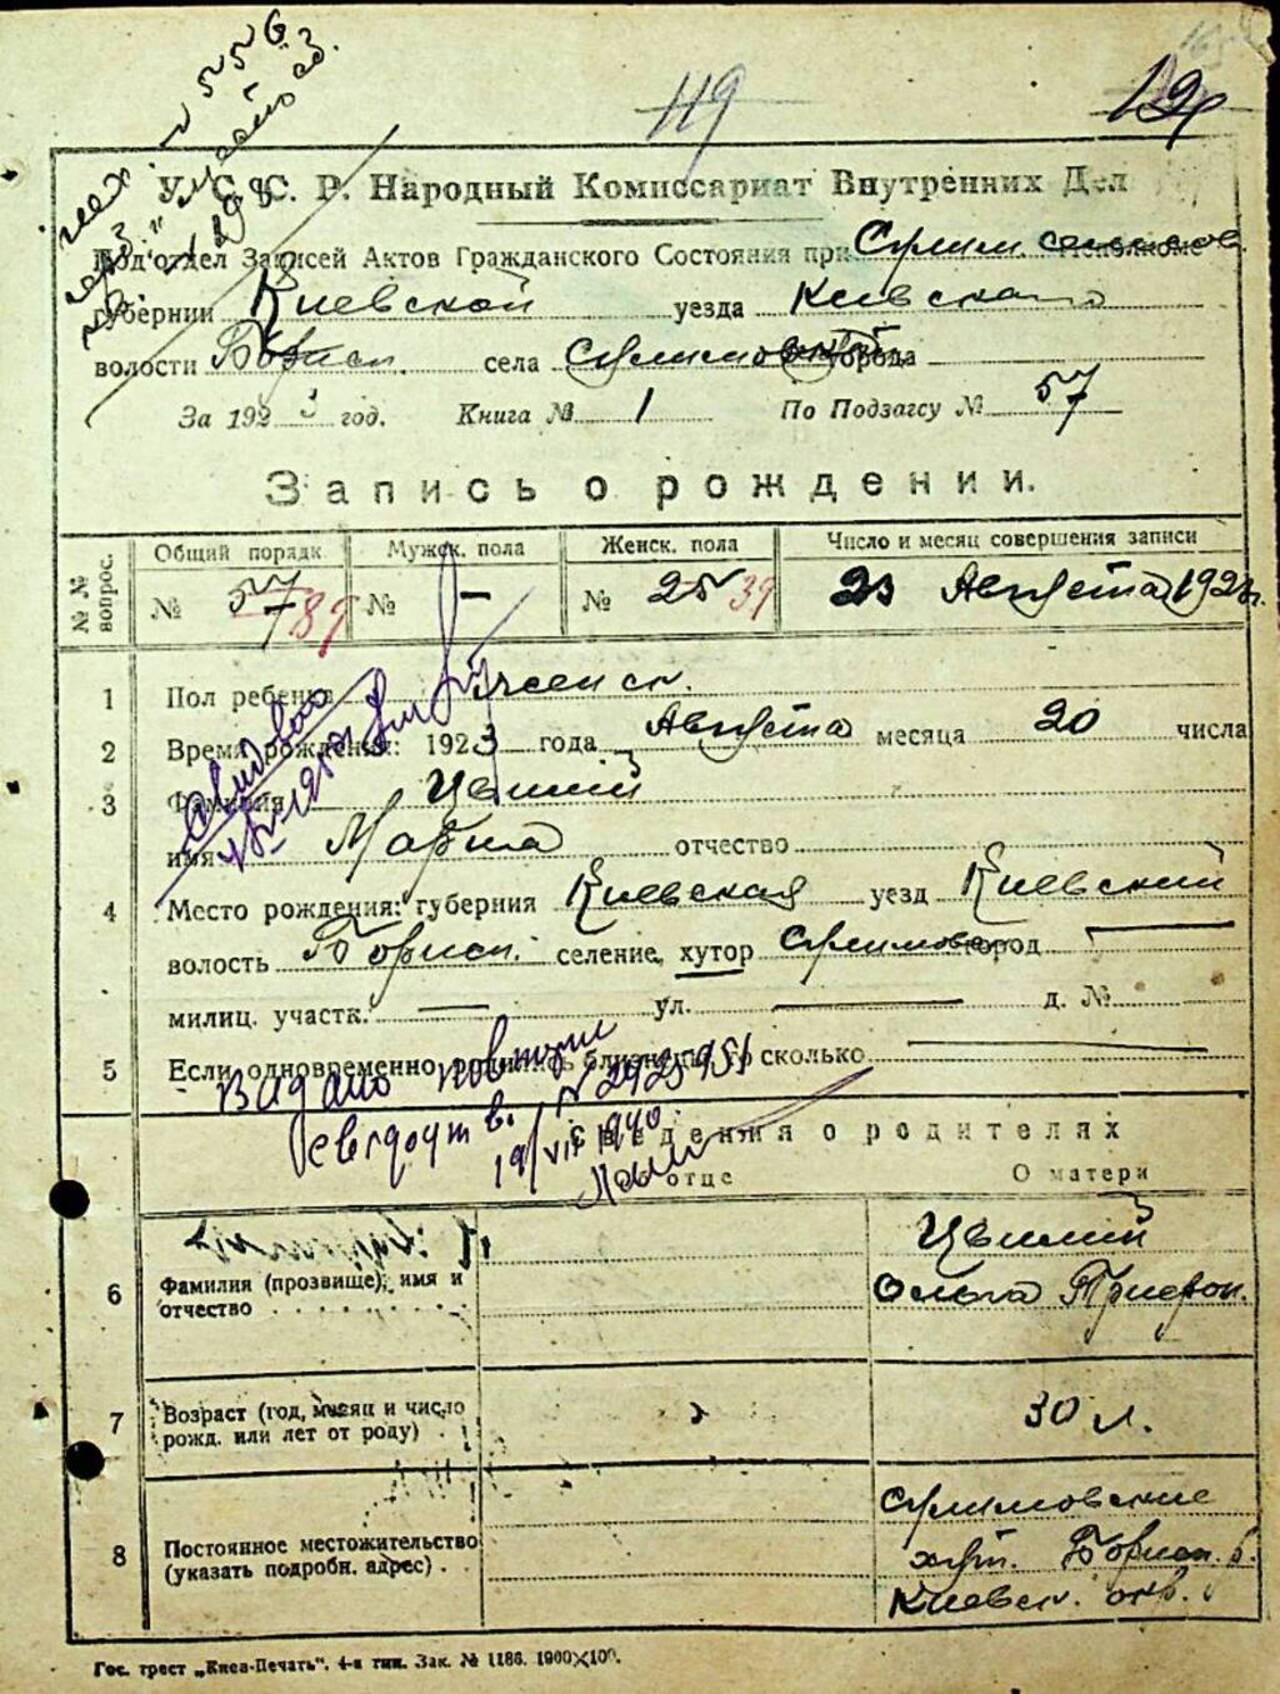 № 556
119
12
У. С. С. Р. Народный Комиссариат Внутренних Дел
Подотдел Записей Актов Гражданского Состояния при Сулим. Исполкоме
губернии Киевской уезда Киевского
волости Борисп. села Сулимовка города
За 1923 год. Книга № 1 По Подзагсу № 57
Запись о рождении.
№ № вопрос. Общий порядк Мужск. пола Женск. пола Число и месяц совершения записи
№ 57 № — № 25 39 23 Августа 1923г.
1 Пол ребенка женск.
2 Время рождения: 1923 года Августа месяца 20 числа
3 Фамилия Цвилий
имя Мария отчество
4 Место рождения: губерния Киевская уезд Киевский
волость Борисп. селение, хутор Сулимовка город —
милиц. участк. — ул. — д. №
5 Если одновременно родились близнецы, то сколько —
Видано повторне
свидоцтв. № 2925951
19/VII 1940
Сведения о родителях
Об отце О матери
6 Фамилия (прозвище), имя и отчество Цвилий
Ольга Трифон.
7 Возраст (год, месяц и число рожд. или лет от роду) 30 л.
8 Постоянное местожительство (указать подробн. адрес) Сулимовские
хут. Борисп. в.
Киевск. окр.
Гос. трест „Киев-Печать". 4-я тип. Зак. № 1186. 1900×100.